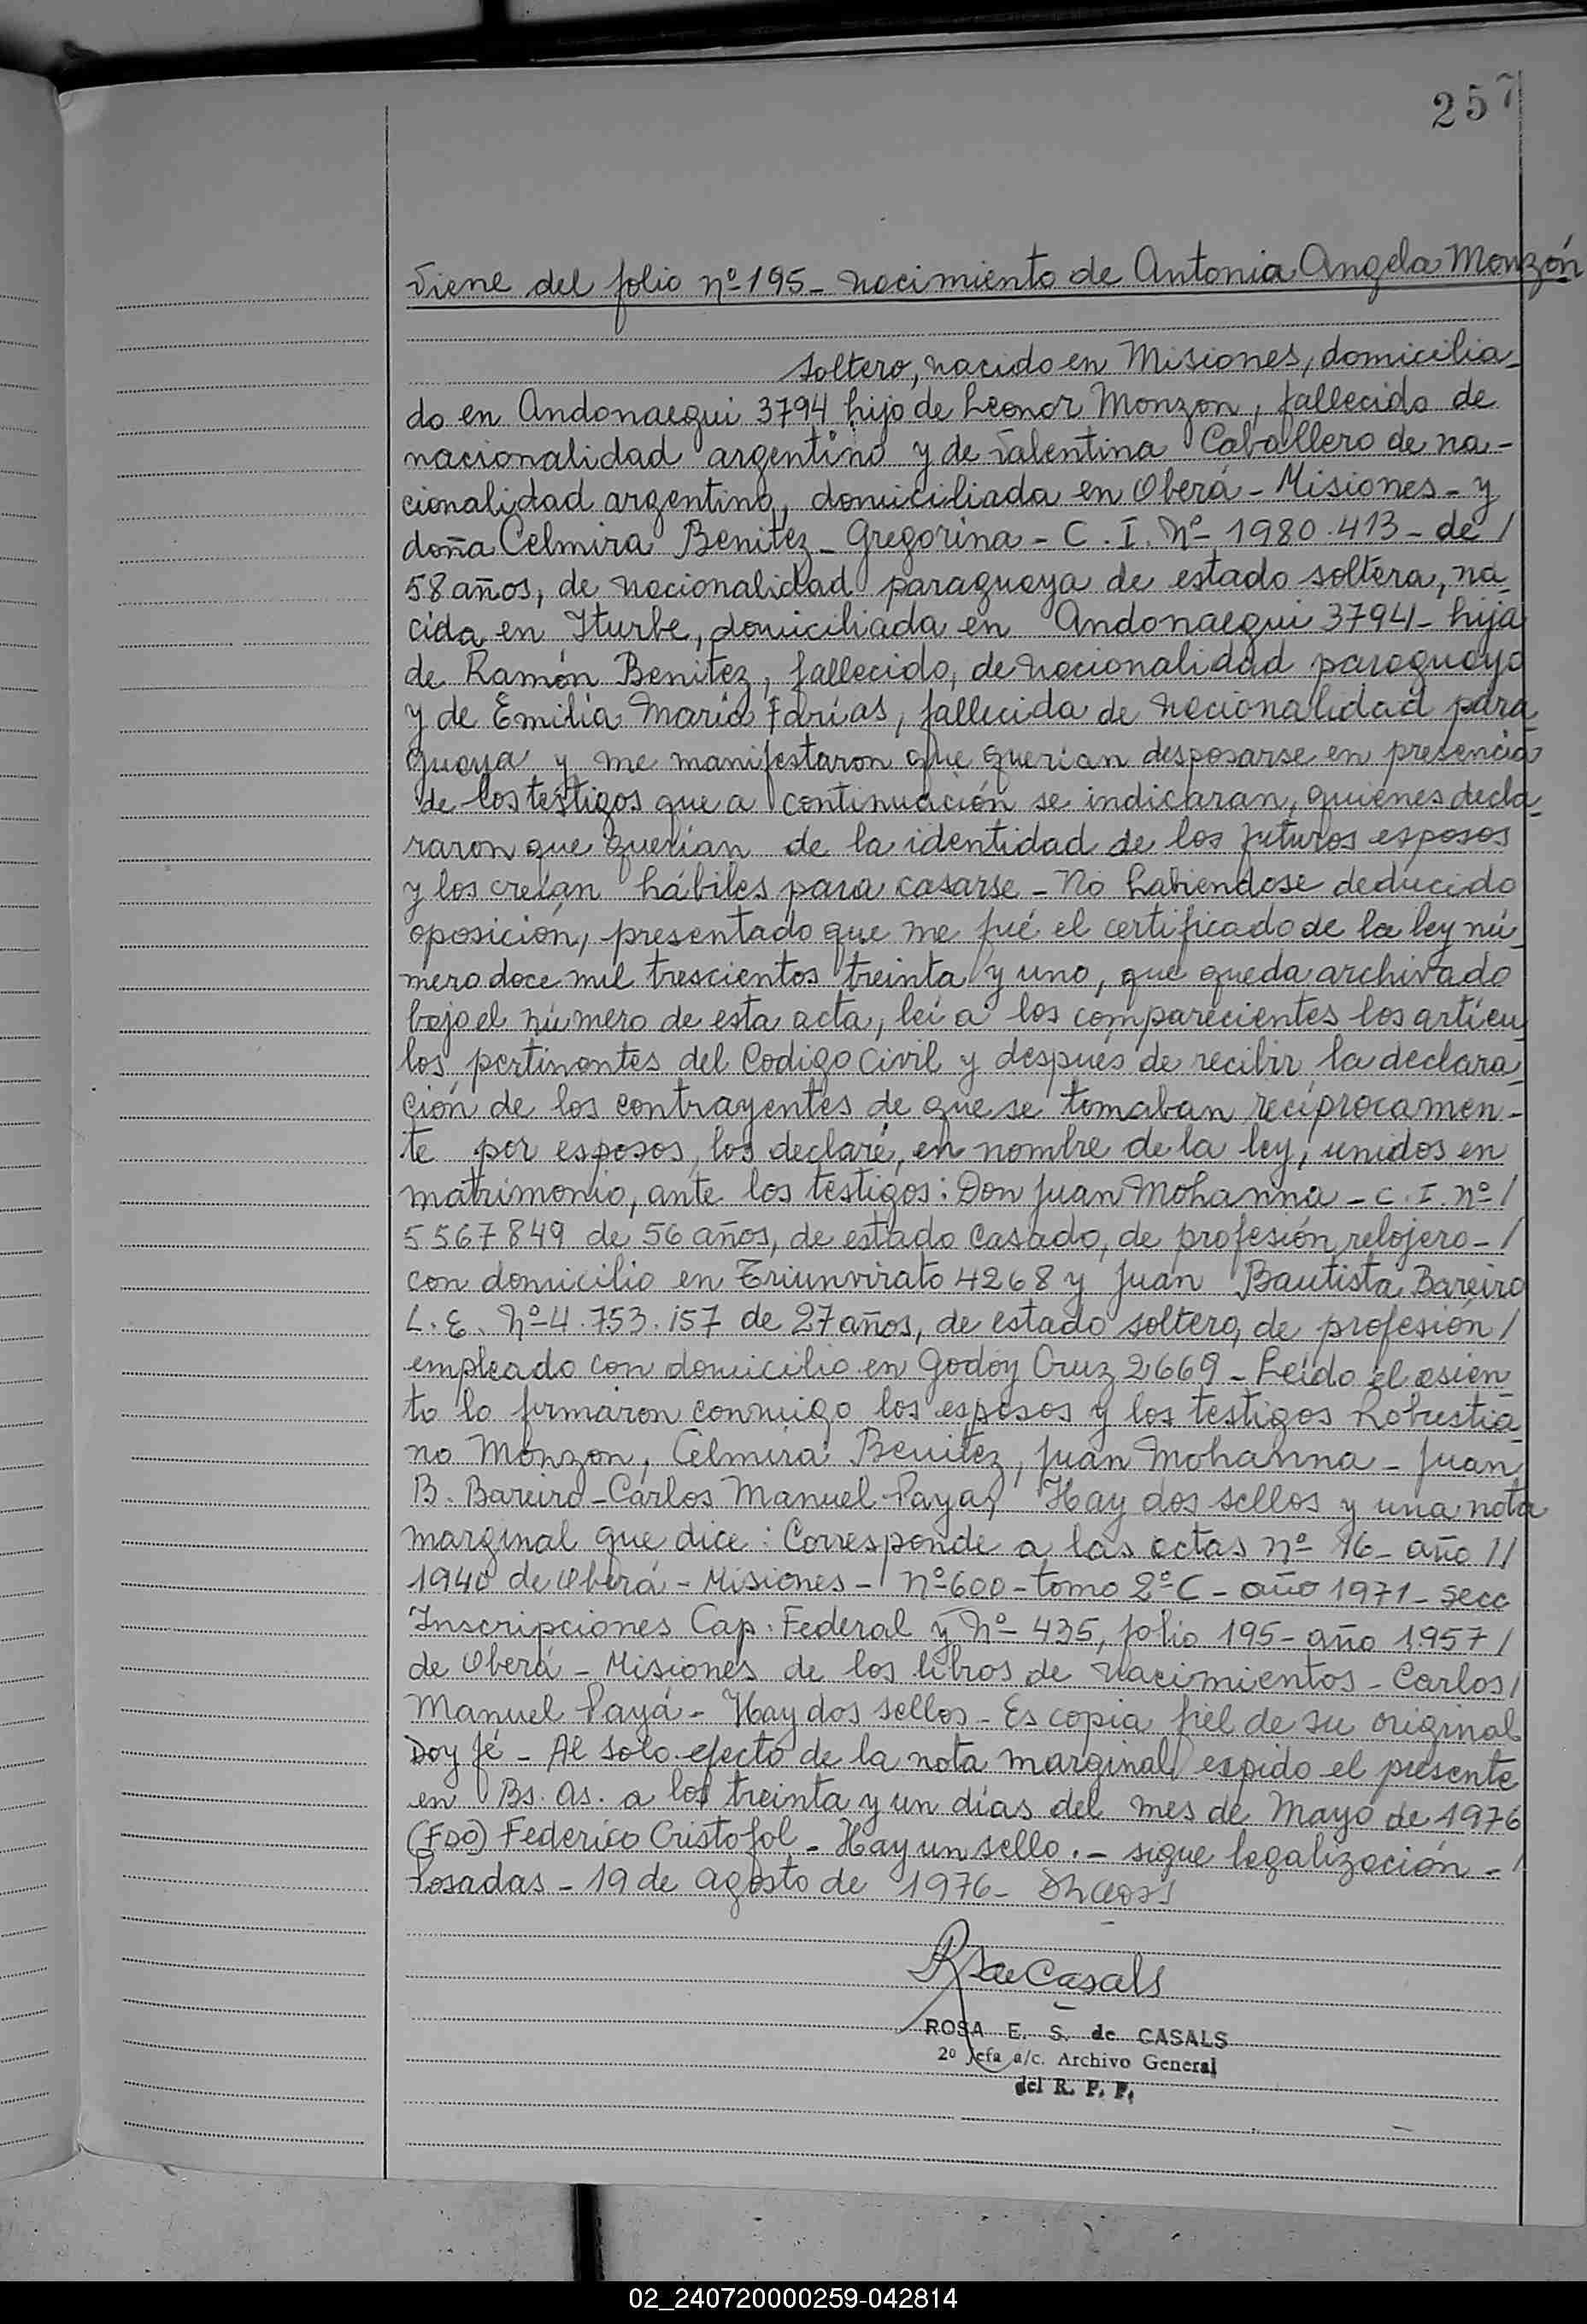 257
Viene del folio nº 195 - nacimiento de Antonia Angela Monzón
soltero, nacido en Misiones, domicilia-
do en Andonaegui 3794 hijo de Leonor Monzon, fallecido de
nacionalidad argentino y de Valentina Caballero de na-
cionalidad argentina, domiciliada en Oberá - Misiones - y
doña Celmira Benitez - Gregorina - C. I. Nº 1980.413 - de /
58 años, de nacionalidad paraguaya de estado soltera, na-
cida en Iturbe, domiciliada en Andonaegui 3794 - hija
de Ramón Benitez, fallecido, de nacionalidad paraguayo
y de Emilia Maria Farias, fallecida de nacionalidad para-
guaya y me manifestaron que querian desposarse en presencia
de los testigos que a continuación se indicaran, quienes decla-
raron que querian de la identidad de los futuros esposos
y los creían hábiles para casarse - No habiendose deducido
oposición, presentado que me fué el certificado de la ley nú-
mero doce mil trescientos treinta y uno, que queda archivado
bajo el número de esta acta, leí a los comparecientes los artícu-
los pertinentes del Codigo Civil y después de recibir la declara-
ción de los contrayentes de que se tomaban recíprocamen-
te por esposos, los declaré, en nombre de la ley, unidos en
matrimonio, ante los testigos: Don Juan Mohanna - C. I. nº /
5567849 de 56 años, de estado casado, de profesión relojero - /
con domicilio en Triunvirato 4268 y Juan Bautista Bareiro
L. E. Nº 4.753.157 de 27 años, de estado soltero, de profesión /
empleado con domicilio en Godoy Cruz 2669 - Leído el asien-
to lo firmaron conmigo los esposos y los testigos Robustia-
no Monzon, Celmira Benitez, Juan Mohanna - Juan
B. Bareiro - Carlos Manuel Payá, Hay dos sellos y una nota
marginal que dice: Corresponde a las actas nº 16 - año //
1940 de Oberá - Misiones - Nº 600 - tomo 2º C - año 1971 - secc
Inscripciones Cap. Federal y Nº 435, folio 195 - año 1957 /
de Oberá - Misiones de los libros de nacimientos - Carlos /
Manuel Payá - Hay dos sellos - Es copia fiel de su original
Doy fé - Al solo efecto de la nota marginal expido el presente
en Bs. As. a los treinta y un días del mes de Mayo de 1976
(FDO) Federico Cristofol - Hay un sello. - sigue legalización - /
Posadas - 19 de agosto de 1976 -
RSdeCasals
ROSA E. S. de CASALS
2º Jefa a/c. Archivo General
del R. P. P.
02_240720000259-042814